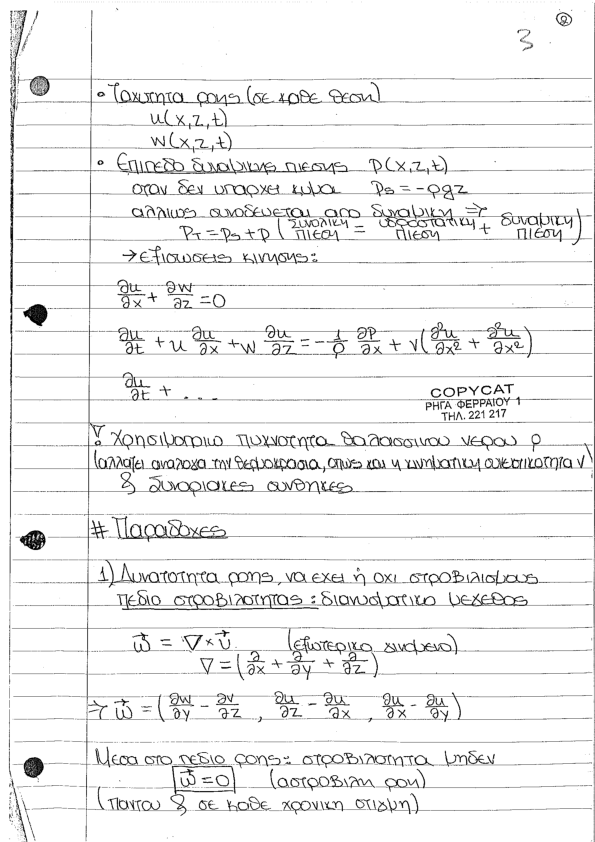 ②
3
• Ταχυτητα ροης (σε καθε θεση)
u(x,z,t)
w(x,z,t)
• Επιπεδο δυναμικης πιεσης P(x,z,t)
οταν δεν υπαρχει κυμα Ps = -ρgz
αλλιως συνοδευεται απο δυναμικη ⇒
PT = Ps + p (συνολικη πιεση = υδροστατικη πιεση + δυναμικη πιεση)
→ εξισωσεις κινησης:
∂u/∂x + ∂w/∂z = 0
∂u/∂t + u ∂u/∂x + w ∂u/∂z = -1/ρ ∂P/∂x + ν(∂²u/∂x² + ∂²u/∂x²)
∂u/∂t + ...
COPYCAT
ΡΗΓΑ ΦΕΡΡΑΙΟΥ 1
ΤΗΛ. 221 217
Χρησιμοποιω πυκνοτητα θαλασσινου νερου ρ
(αλλαζει αναλογα την θερμοκρασια, οπως και η κινηματικη συνεκτικοτητα ν)
& συνοριακες συνθηκες
# Παραδοχες
1) Δυνατοτητα ροης, να εχει ή οχι στροβιλισμους
πεδιο στροβιλοτητας: διανυσματικο μεγεθος
ω⃗ = ∇×υ⃗ (εξωτερικο γινομενο)
∇ = (∂/∂x + ∂/∂y + ∂/∂z)
⇒ ω⃗ = (∂w/∂y - ∂v/∂z , ∂u/∂z - ∂u/∂x , ∂u/∂x - ∂u/∂y)
Μεσα στο πεδιο ροης: στροβιλοτητα μηδεν
ω⃗ = 0 (αστροβιλη ροη)
(παντου & σε καθε χρονικη στιγμη)